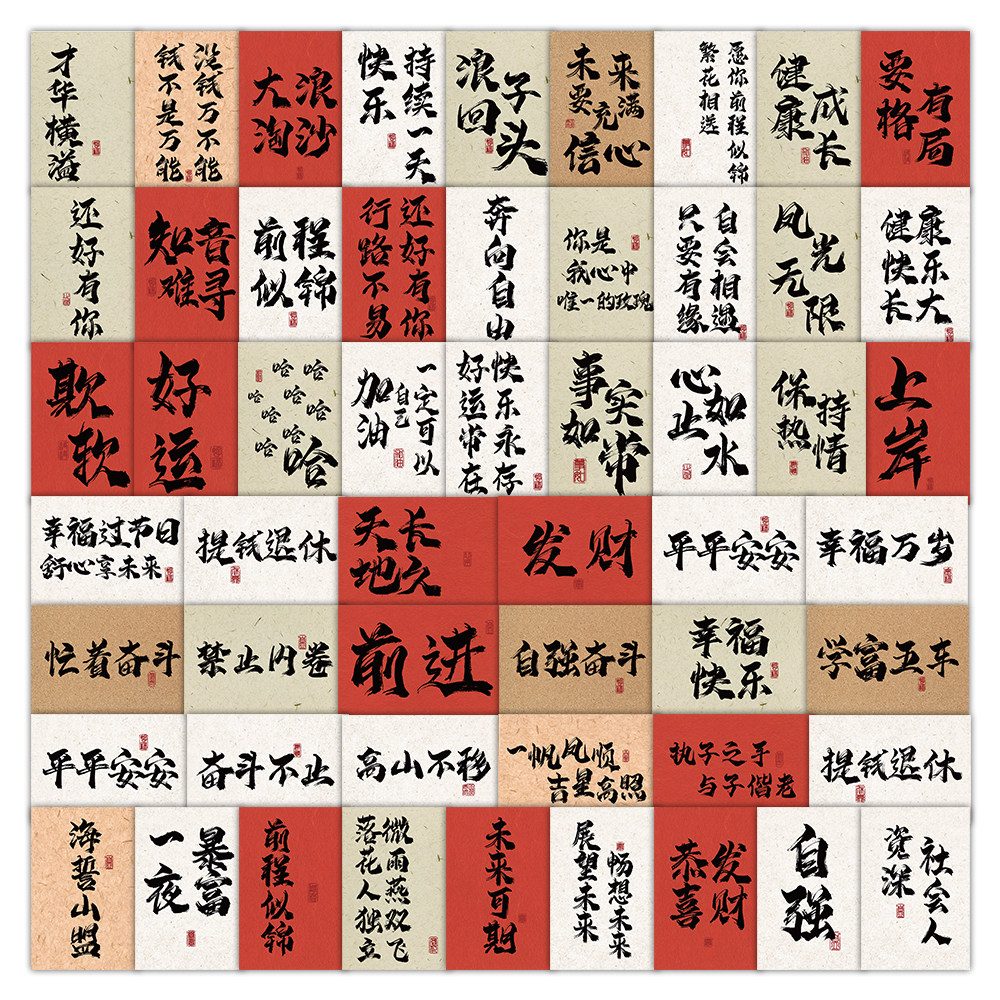 才华横溢
钱不是万能
没钱万不能
大浪
淘沙
快乐
持续一天
浪子
回头
未来
要充满
信心
愿你前程似锦
繁花相送
健康
成长
要有
格局
还好有你
知音
难寻
前程
似锦
行路不易
还好有你
奔向自由
你是
我心中
唯一的玫瑰
只要有缘
自会相遇
风光
无限
健康
快乐
长大
欺软
好运
哈哈
哈哈哈
哈哈
哈哈
哈哈
一定可以
自己
加油
快乐永存
好运常在
事实
如常
心如
止水
保持
热情
上岸
幸福过节日
舒心享未来
提钱退休
天长
地久
发财
平平安安
幸福万岁
忙着奋斗
禁止内卷
前进
自强奋斗
幸福
快乐
学富五车
平平安安
奋斗不止
高山不移
一帆风顺
吉星高照
执子之手
与子偕老
提钱退休
海誓山盟
一夜
暴富
前程似锦
落花人独立
微雨燕双飞
未来可期
展望未来
畅想未来
恭喜
发财
自强
资深
社会人